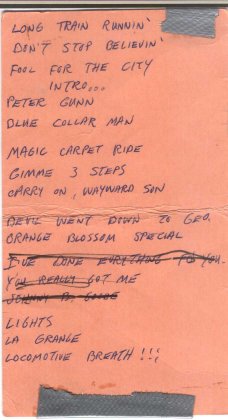 LONG TRAIN RUNNIN'
DON'T STOP BELIEVIN'
FOOL FOR THE CITY
INTRO...
PETER GUNN
BLUE COLLAR MAN
MAGIC CARPET RIDE
GIMME 3 STEPS
CARRY ON, WAYWARD SON
DEVIL WENT DOWN TO GEO.
ORANGE BLOSSOM SPECIAL
DONE EVRYTHING FO YOU.
YOU REALLY GOT ME
JOHNNY B. GOODE
LIGHTS
LA GRANGE
LOCOMOTIVE BREATH !!!